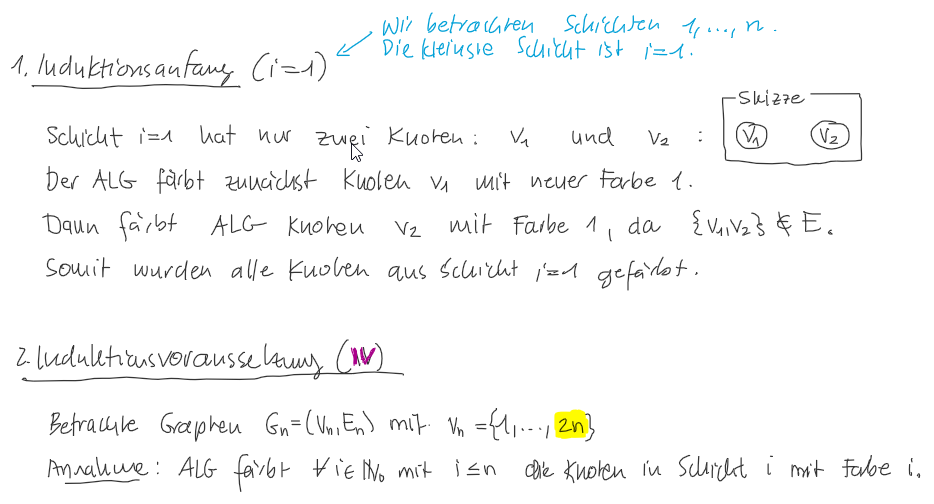 Wir betrachten Schichten 1,...,n.
Die kleinste Schicht ist i=1.
1. Induktionsanfang (i=1)
Skizze
Schicht i=1 hat nur zwei Knoten: v₁ und v₂ :
v₁ v₂
Der ALG färbt zunächst Knoten v₁ mit neuer Farbe 1.
Dann färbt ALG Knoten v₂ mit Farbe 1, da {v₁,v₂} ∉ E.
Somit wurden alle Knoten aus Schicht i=1 gefärbt.
2. Induktionsvoraussetzung (IV)
Betrachte Graphen Gₙ=(Vₙ,Eₙ) mit Vₙ={1,...,2n}
Annahme: ALG färbt ∀i∈ℕ₀ mit i≤n die Knoten in Schicht i mit Farbe i.